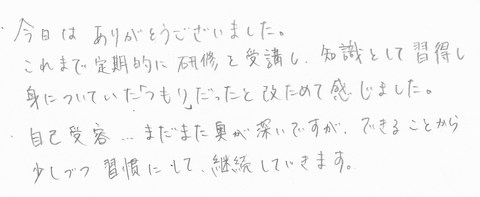 ・今日は ありがとうございました。
これまで定期的に研修を受講し、知識として習得し
身についていた「つもり」だったと改ためて感じました。
・自己受容…まだまだ奥が深いですが、できることから
少しづつ習慣にして、継続していきます。